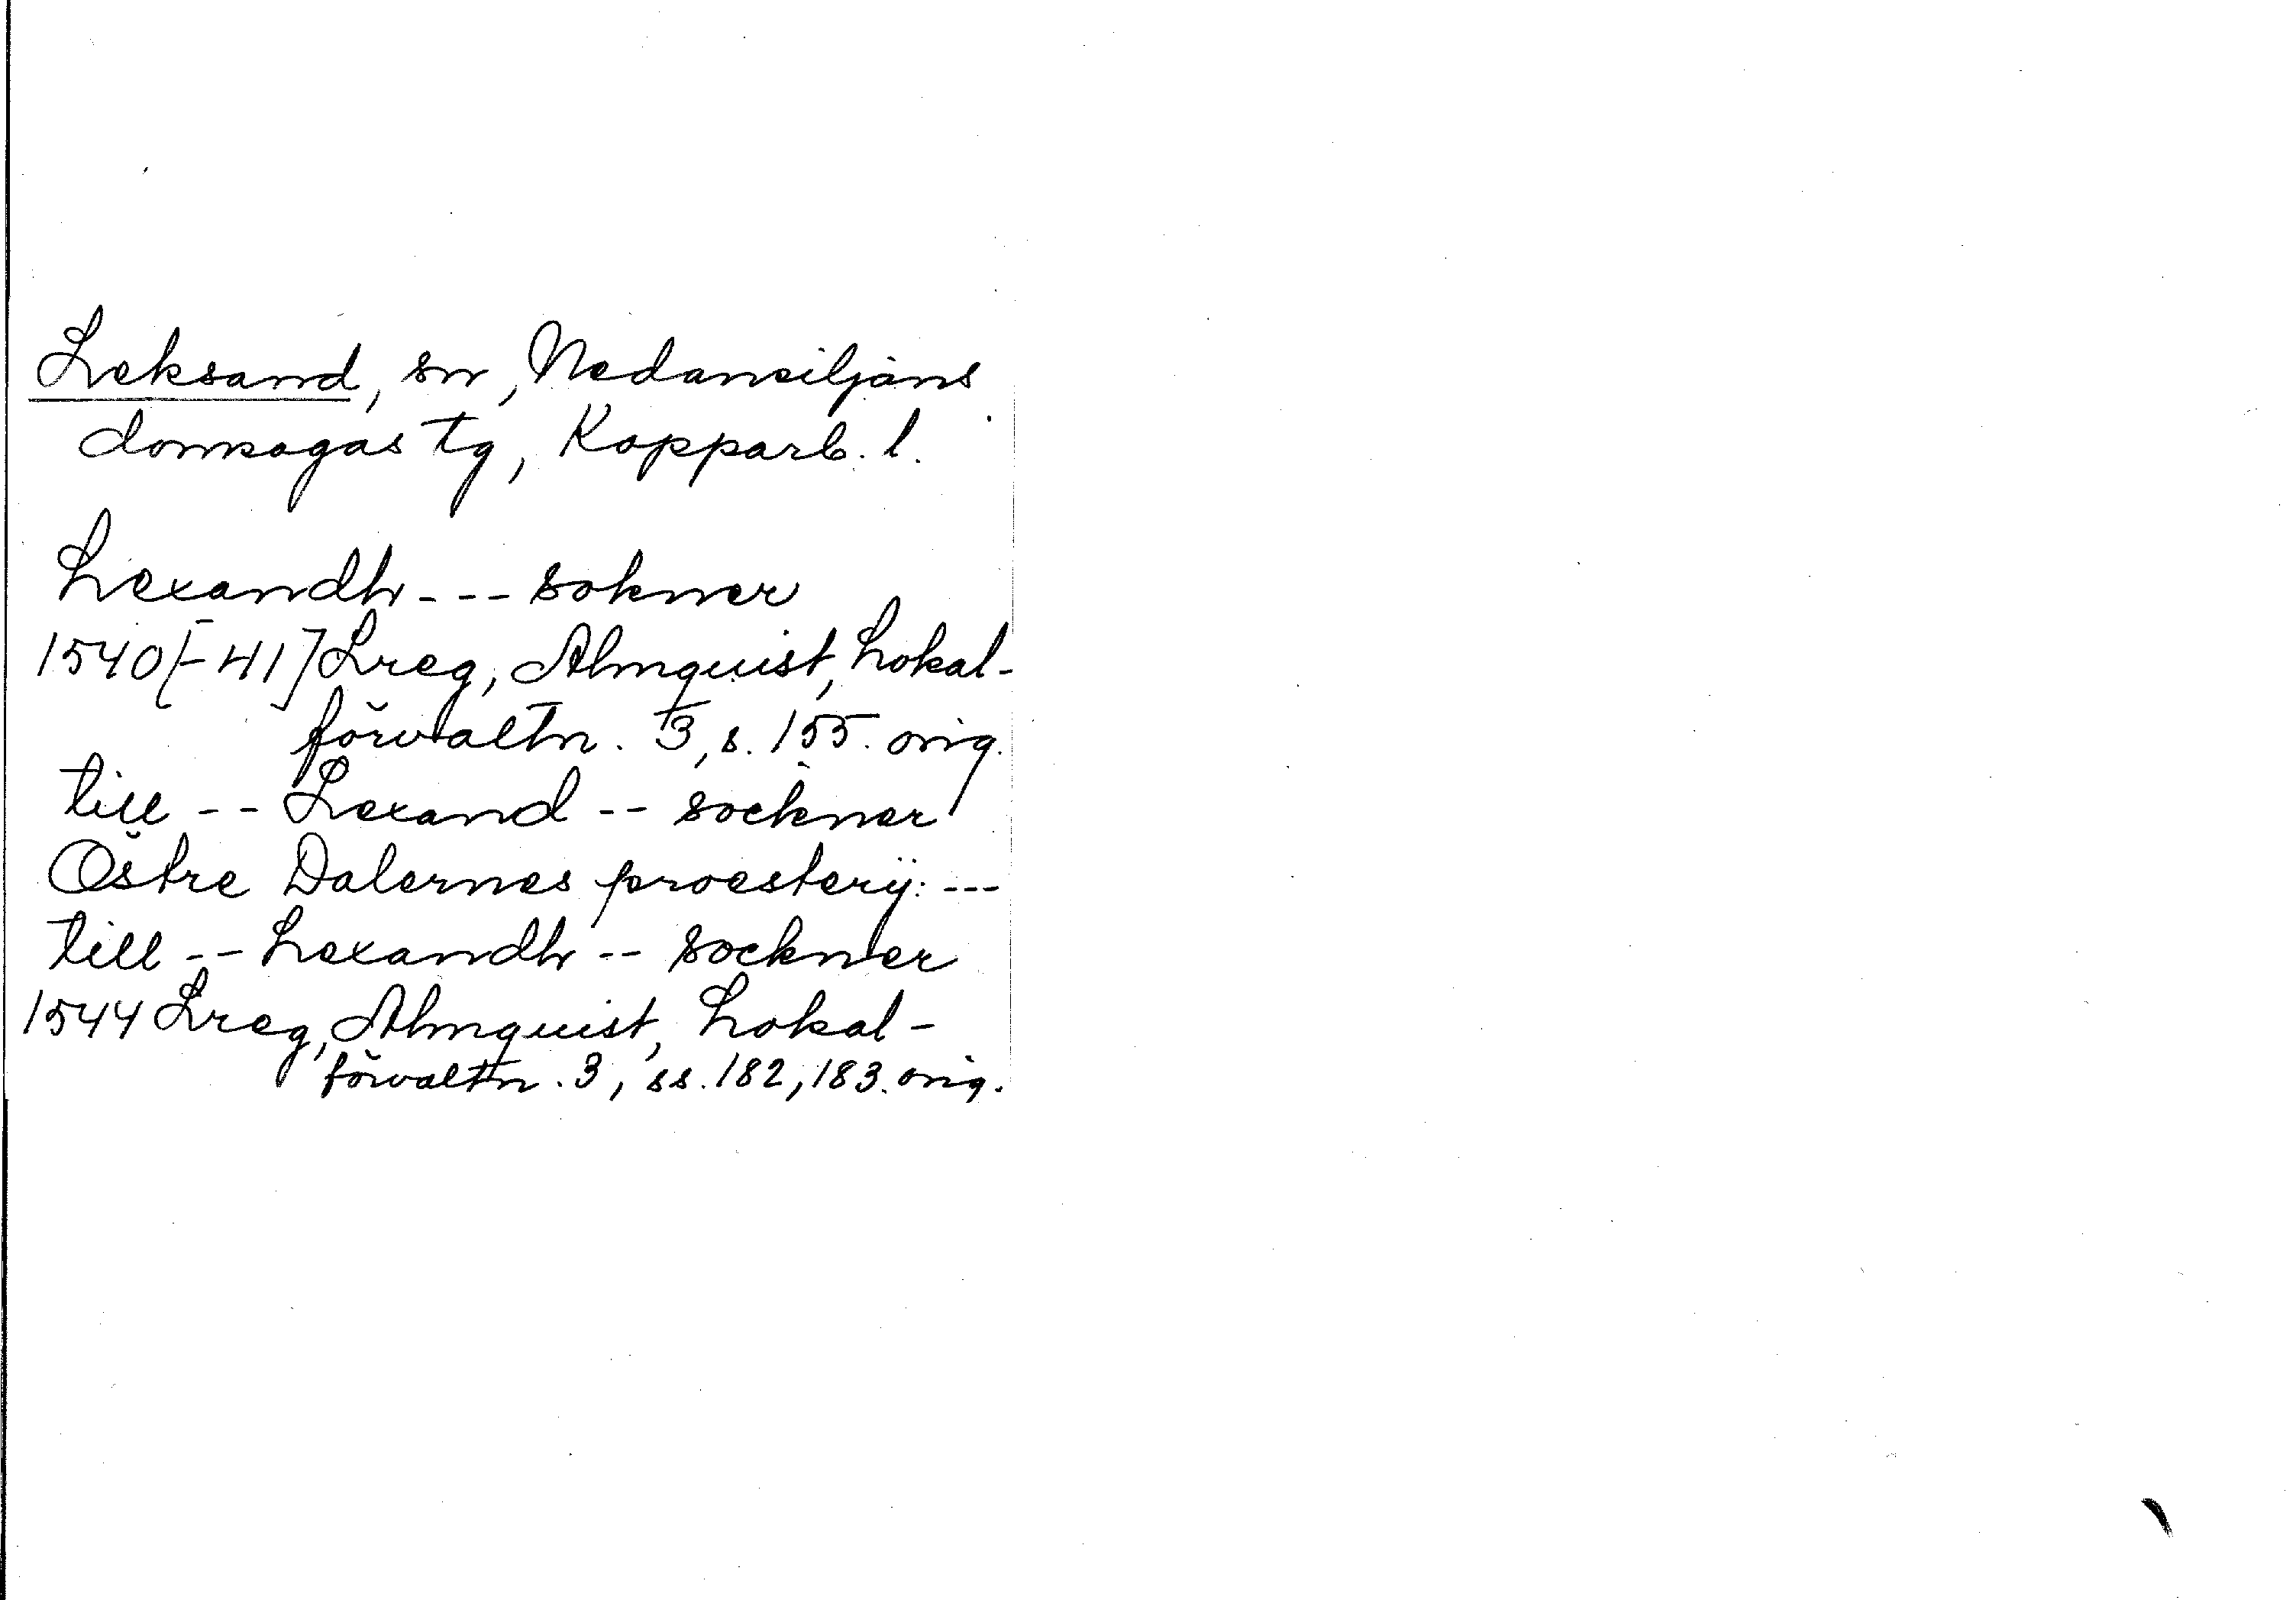 Leksand, sn, Nedansiljans
domsagas tg, Kopparb. l.
Lexandh --- sokner
1540[-41] Lreg, Almquist, Lokal-
förvaltn. 3, s. 155. orig.
till -- Lexand -- sockner
Östre Dalernes proesterij: ---
till -- Lexandh -- sockner
1544 Lreg, Almquist, Lokal-
förvaltn. 3, ss. 182, 183. orig.